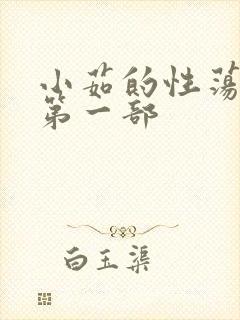 小茹的性荡
第一部
白玉渠